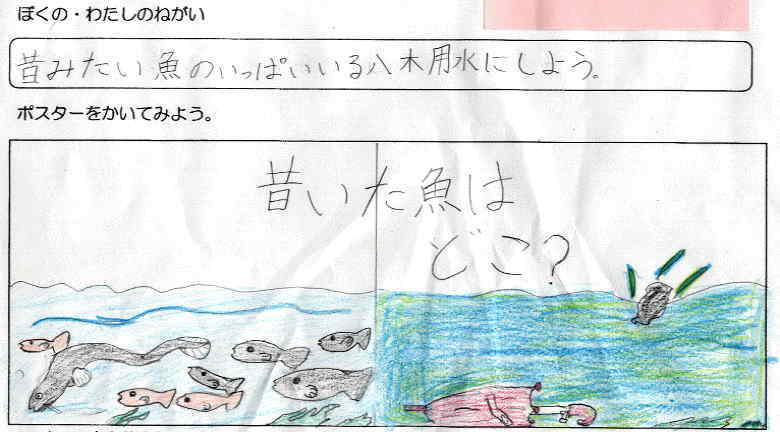 ぼくの・わたしのねがい
昔みたい魚のいっぱいいる八木用水にしよう。
ポスターをかいてみよう。
昔いた魚は
どこ?